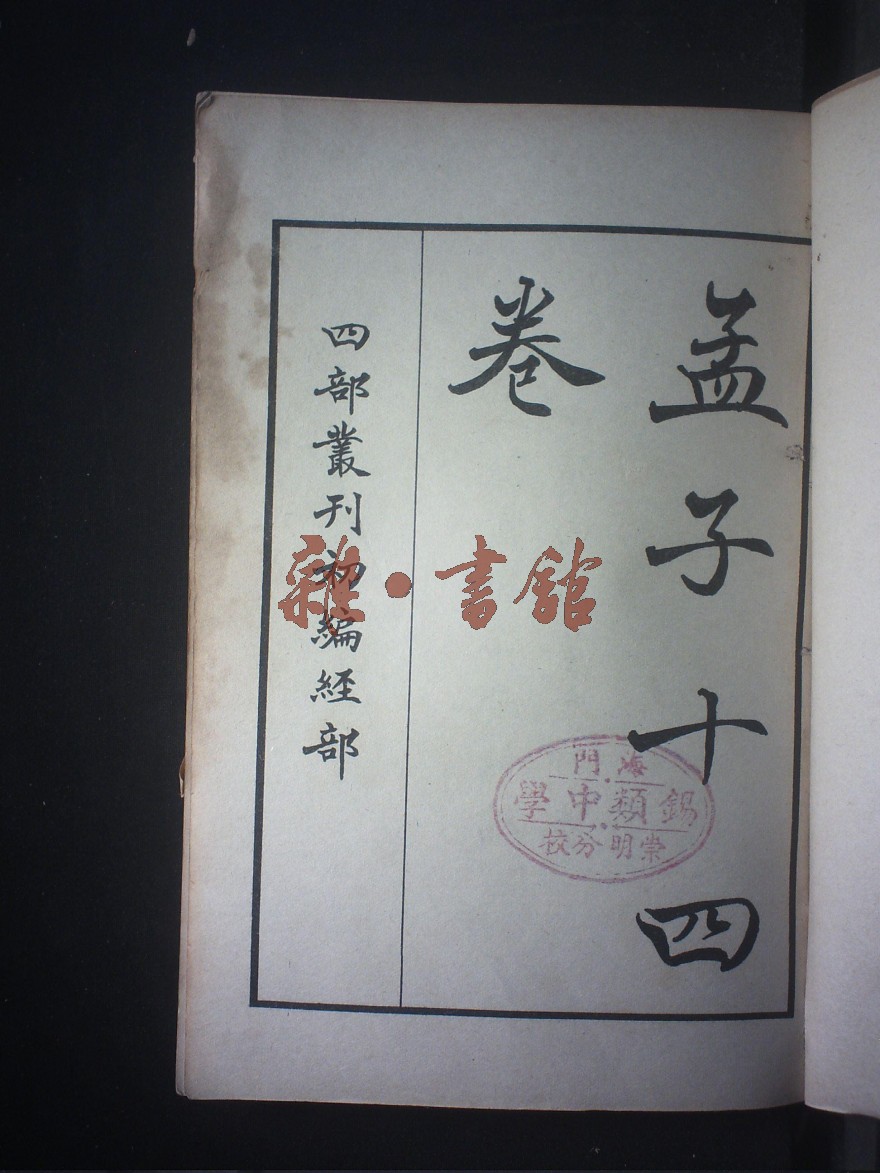 孟子十四
卷
四部叢刊初編經部
海門
錫類中學
崇明分校
雜·書館